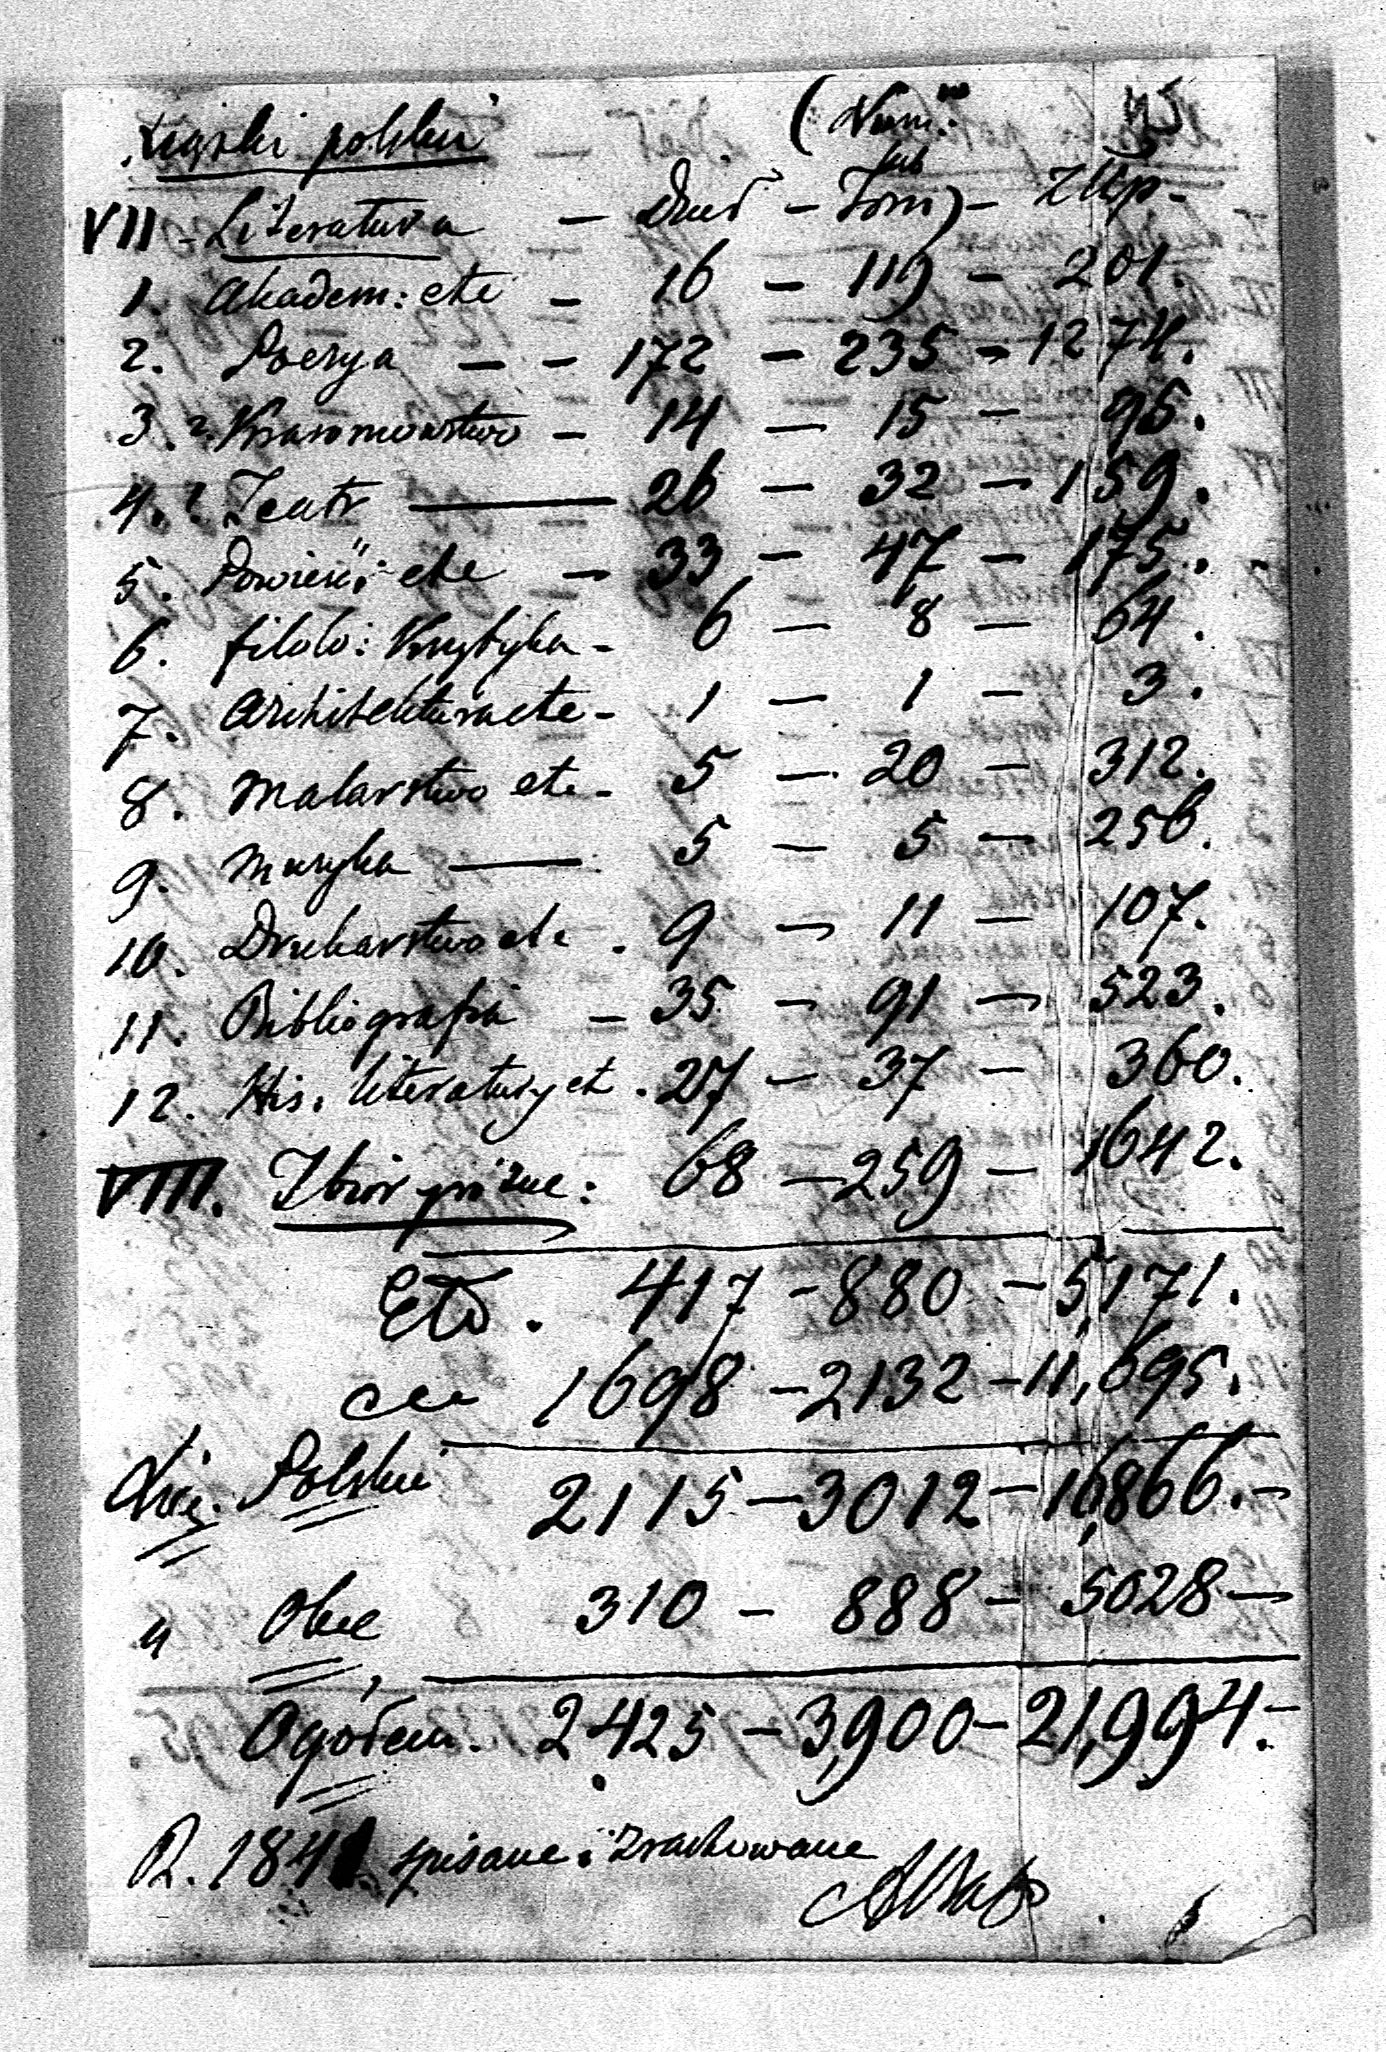 Książki polskie (Num.
VII - Literatura - Dzieł - lub Tom) - Złtp -
1. Akadem: etc - 16 - 119 - 201.
2. Poezya - - 172 - 235 - 1274.
3. Krasomowstwo - 14 - 15 - 95.
4. Teatr - 26 - 32 - 159.
5. Powieści: etc - 33 - 47 - 175.
6. filolo: Krytyka - 6 - 8 - 64.
7. Architektura etc - 1 - 1 - 3.
8. Malarstwo etc - 5 - 20 - 312.
9. Muzyka - 5 - 5 - 256.
10. Drukarstwo etc . 9 - 11 - 107.
11. Bibliografia - 35 - 91 - 523.
12. His. literatury etc . 27 - 37 - 360.
VIII. Zbiory różne: 68 - 259 - 1642.
417 - 880 - 5,171.
1698 - 2132 - 11,695.
Książ. Polskie 2115 - 3012 - 16,866. -
" Obce 310 - 888 - 5028 -
Ogółem. 2425 - 3,900 - 21,994. -
R. 1841 spisane i zrachowane